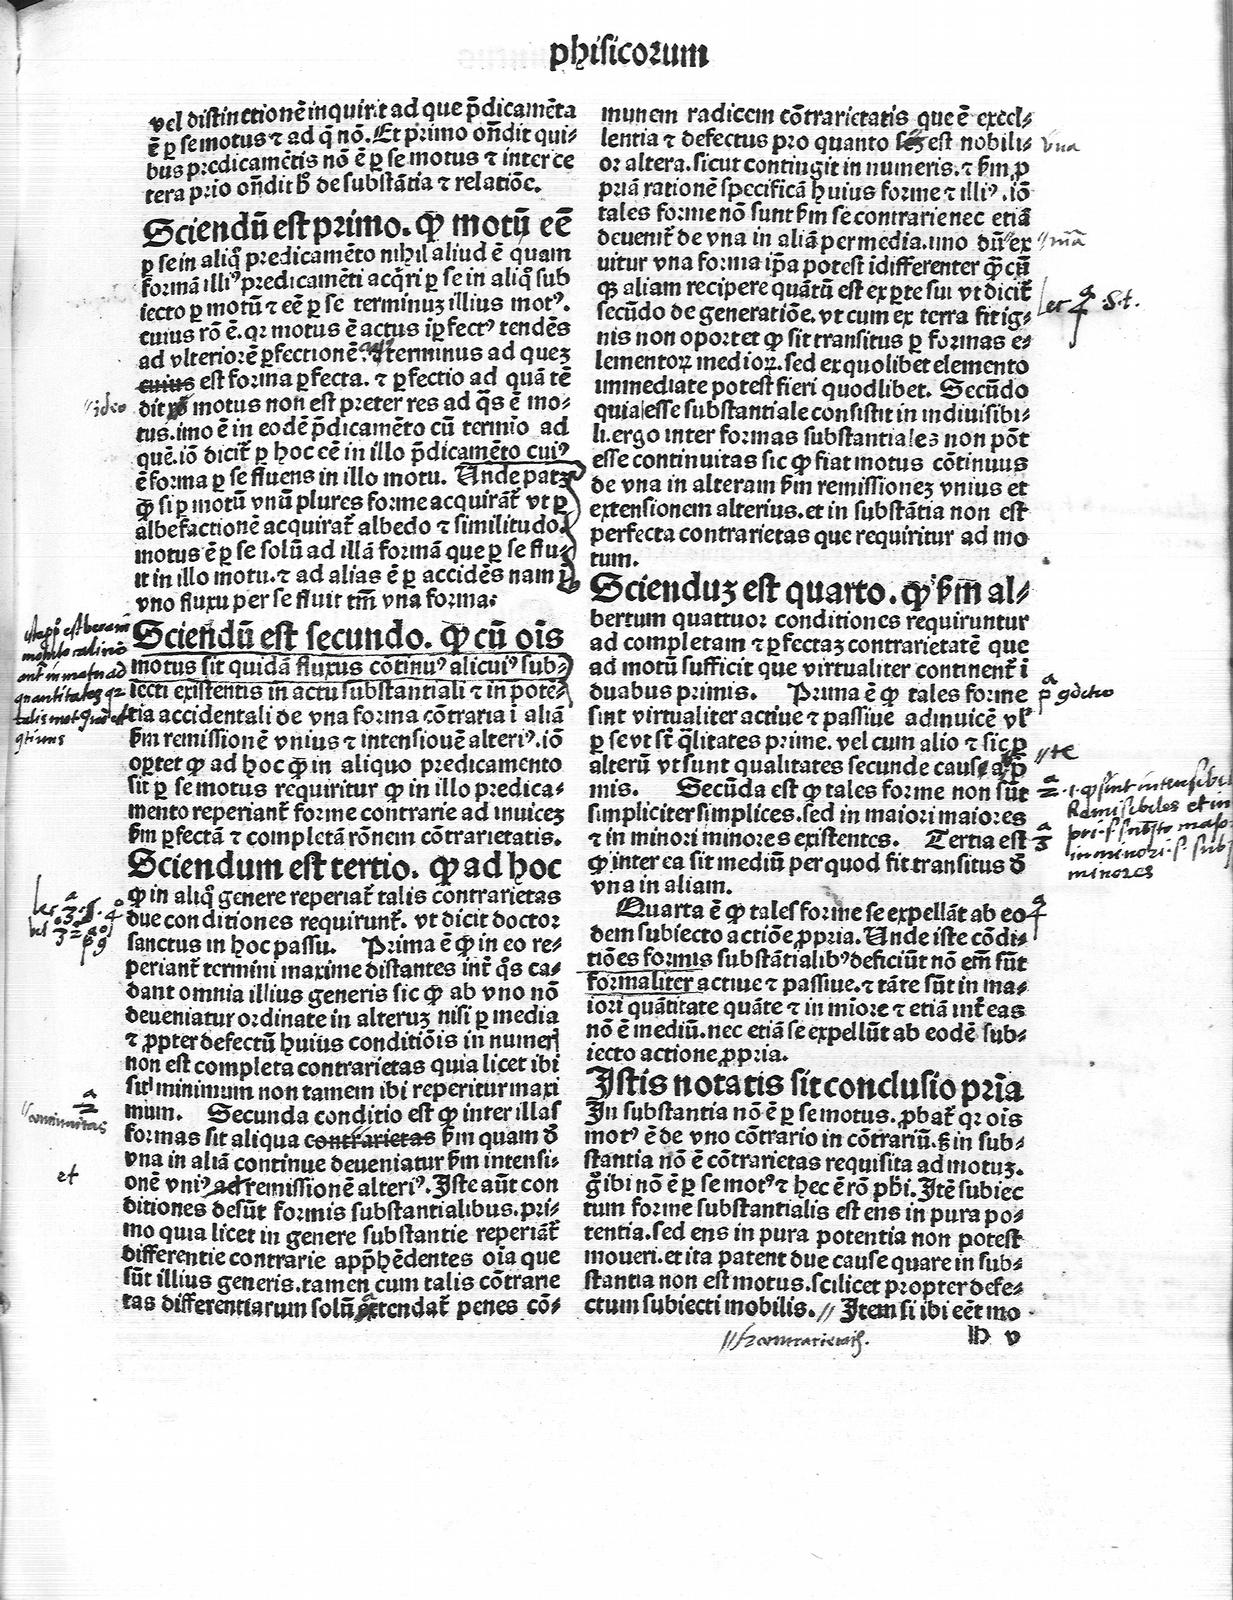 phisicorum
vel distinctionē inquirit ad que p̄dicamēta
ē ꝑ se motus ⁊ ad q̄ nō. Et primo on̄dit qui⸗
bus predicamētis nō ē ꝑ se motus ⁊ inter ce
tera prio on̄dit h̓ de substātia ⁊ relatiōe.
Sciendū est primo. ꝙ motū eē
ꝑ se in aliq̊ predicamēto nihil aliud ē quam
formā illiꝰ predicamēti acq̄ri ꝑ se in aliq̊ sub
iecto ꝑ motū ⁊ eē ꝑ se terminuꝫ illius motꝰ.
cuius rō ē. qꝛ motus ē actus īperfectꝰ tendēs
ad vlteriorē ꝑfectionē terminus ad queꝫ
cuius est forma ꝑfecta. ⁊ ꝑfectio ad quā tē
dit motus non est preter res ad q̄s ē mo⸗
tus. imo ē in eodē p̄dicamēto cū termio ad
quē. iō dicit̄ ꝑ hoc eē in illo p̄dicamēto cuiꝰ
ē forma ꝑ se fluens in illo motu. Unde patꝫ
ꝙ si ꝑ motū vnū plures forme acquirāt̄ vt ꝑ
albefactionē acquirat̄ albedo ⁊ similitudo.
motus ē ꝑ se solū ad illā formā que ꝑ se flu⸗
it in illo motu. ⁊ ad alias ē ꝑ accidēs nam ꝑ
vno fluxu per se fluit tm̄ vna forma.
Sciendū est secundo. ꝙ cū ois
motus sit quidā fluxus cōtinuꝰ alicuiꝰ sub⸗
iecti existentis in actu substantiali ⁊ in potē⸗
tia accidentali de vna forma cōtraria ī aliā
ẜm remissionē vnius ⁊ intensionē alteriꝰ. iō
oꝑtet ꝙ ad hoc ꝙ in aliquo predicamento
sit ꝑ se motus requiritur ꝙ in illo predica⸗
mento reperiant̄ forme contrarie ad inuiceꝫ
ẜm ꝑfectā ⁊ completā rōnem cōtrarietatis.
Sciendum est tertio. ꝙ ad hoc
ꝙ in aliq̊ genere reperiat̄ talis contrarietas
due conditiones requirunt̄. vt dicit doctor
sanctus in hoc passu. Prima ē ꝙ in eo re⸗
periant̄ termini maxime distantes int̄ q̊s ca⸗
dant omnia illius generis sic ꝙ ab vno nō
deueniatur ordinate in alteruꝫ nisi ꝑ media
⁊ ꝓpter defectū huius conditiōis in numeris
non est completa contrarietas quia licet ibi
sit minimum non tamem ibi reperitur maxi
mum. Secunda conditio est ꝙ inter illas
formas sit aliqua contrarietas ẜm quam d̄
vna in aliā continue deueniatur ẜm intensi⸗
onē vniꝰ ad remissionē alteriꝰ. Iste aūt con
ditiones desūt formis substantialibus. pri⸗
mo quia licet in genere substantie reperiāt̄
differentie contrarie app̄hēdentes oia que
sūt illius generis. tamen cum talis cōtrarie
tas differentiarum solū extendat̄ penes cō⸗
munem radicem cōtrarietatis que ē excel⸗
lentia ⁊ defectus pro quanto est nobili⸗
or altera. sicut contingit in numeris. ⁊ ẜm ꝓ
priā rationē specificā huius forme ⁊ illiꝰ. iō
tales forme nō sunt ẜm se contrarie nec etiā
deuenit̄ de vna in aliā per media. imo dū ex
uitur vna forma ip̄a potest īdifferenter q̄cū
qꝫ aliam recipere quātū est ex ꝑte sui vt dicit̄
secūdo de generatiōe. vt cum ex terra fit ig⸗
nis non oportet ꝙ sit transitus ꝑ formas e⸗
lementoꝝ medioꝝ. sed ex quolibet elemento
immediate potest fieri quodlibet. Secūdo
quia esse substantiale consistit in indiuisibi⸗
li. ergo inter formas substantiales non pōt
esse continuitas sic ꝙ fiat motus cōtinuus
de vna in alteram ẜm remissioneꝫ vnius et
extensionem alterius. et in substātia non est
perfecta contrarietas que requiritur ad mo
tum.
Scienduꝫ est quarto. ꝙ ẜm al⸗
bertum quattuor conditiones requiruntur
ad completam ⁊ ꝑfectaꝫ contrarietatē que
ad motū sufficit que virtualiter continent̄ ī
duabus primis. Prima ē ꝙ tales forme
sint virtualiter actiue ⁊ passiue adinuicē vl̓
ꝑ se vt st̄ q̄litates prime. vel cum alio ⁊ sic ꝑ
alterū vt sunt qualitates secunde
mis. Secūda est ꝙ tales forme non sūt
simpliciter simplices. sed in maiori maiores
⁊ in minori minores existentes. Tertia est
ꝙ inter ea sit mediū per quod fit transitus d̄
vna in aliam.
Quarta ē ꝙ tales forme se expellāt ab eo
dem subiecto actiōe ꝓpria. Unde iste cōdi⸗
tiōes formis substātialibꝰ deficiūt nō em̄ sūt
formaliter actiue ⁊ passiue. ⁊ tāte sūt in ma⸗
iori quātitate quāte ⁊ in miore ⁊ etiā int̄ eas
nō ē mediū. nec etiā se expellūt ab eodē sub⸗
iecto actione ꝓpria.
Istis notatis sit conclusio pria
In substantia nō ē ꝑ se motus. ꝓbat̄ qꝛ ois
motꝰ ē de vno cōtrario in cōtrariū. ẜ in sub⸗
stantia nō ē cōtrarietas requisita ad motuꝫ.
g̊ ibi nō ē ꝑ se motꝰ ⁊ hec ē rō ph̓i. Itē subiec
tum forme substantialis est ens in pura po⸗
tentia. sed ens in pura potentia non potest
moueri. et ita patent due cause quare in sub⸗
stantia non est motus. scilicet propter defe⸗
ctum subiecti mobilis. // Item si ibi eēt mo
D v
vna
ideo
et
minores